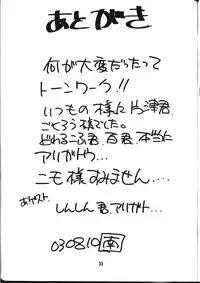 あとがき
何が大変だったって
トーンワーク!!
いつもの様に片津君、
ごくろう様でした。
どれみこふ君、百君、本当に
アリガトウ…
ニモ様すみません…
おゲスト しんしん君、アリガト…
030810 南
33